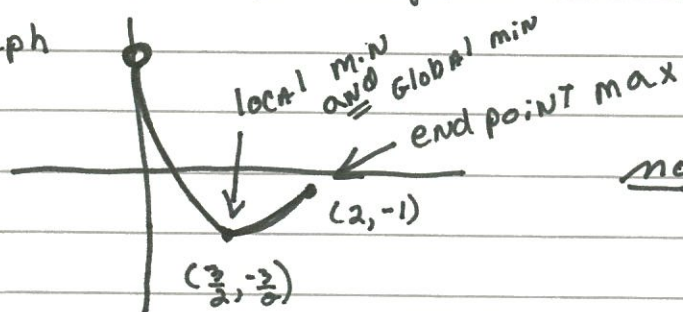 ph
local min
and global min
endpoint max
(2, -1)
(3/2, -3/2)